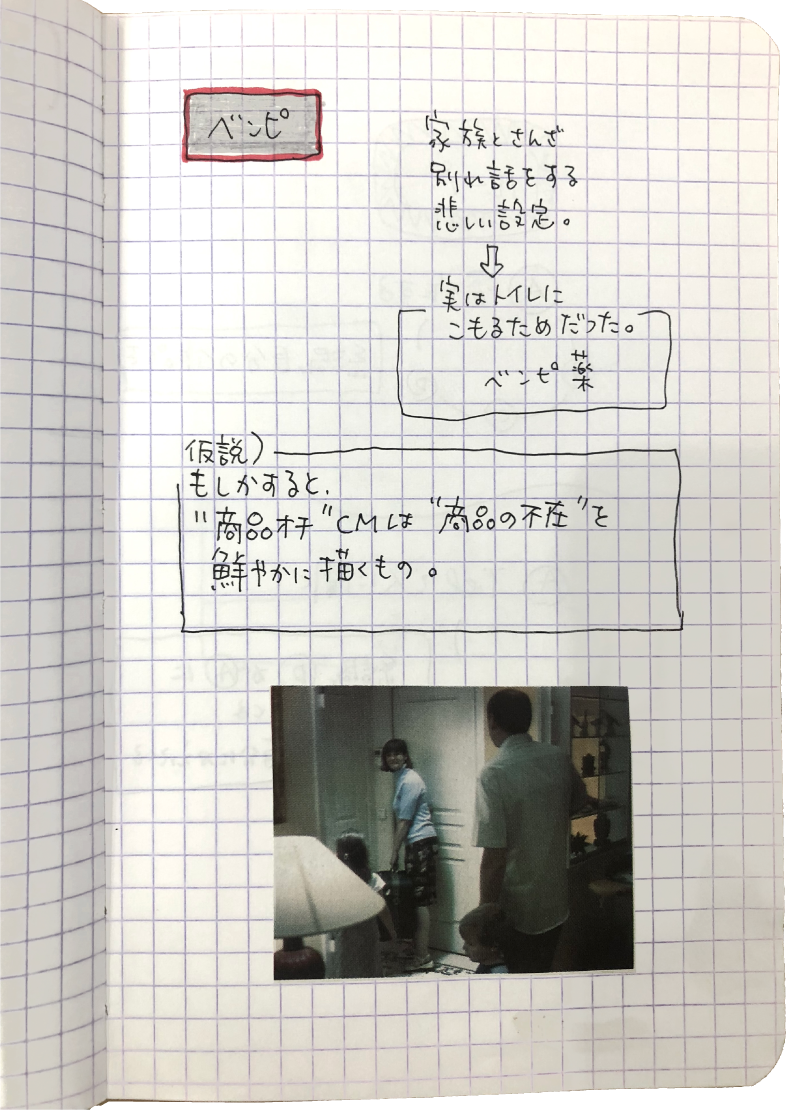 ベンピ
家族とさんざ
別れ話をする
悲しい設定。
⇩
実はトイレに
こもるためだった。
ベンピ薬
仮説)
もしかすると、
"商品オチ"CMは"商品の不在"を
鮮やかに描くもの。